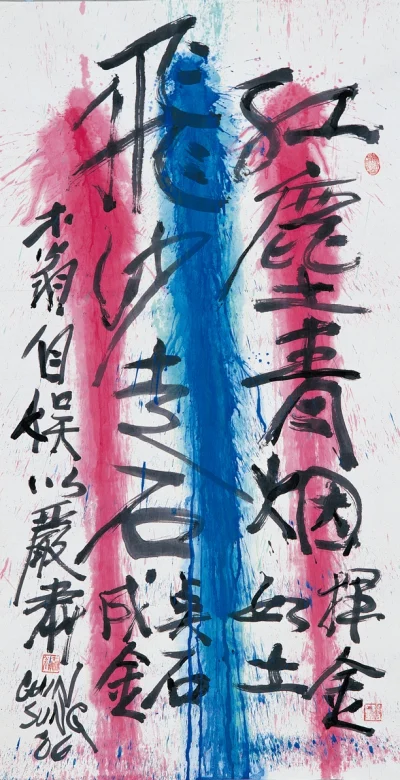 紅塵青烟
揮金
如土
飛沙走石
奌石
成金
翁自娛以嚴肅
CHIN
SUNG
06